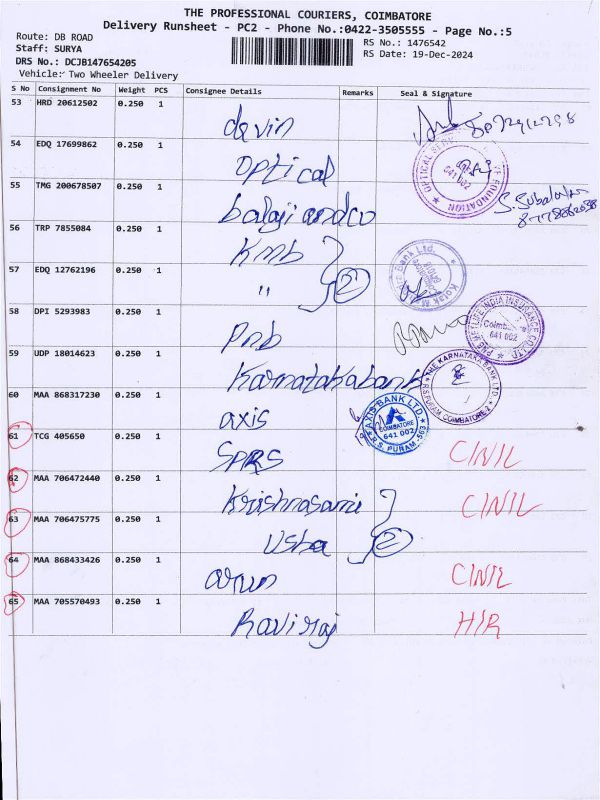 THE PROFESSIONAL COURIERS, COIMBATORE
Delivery Runsheet - PC2 - Phone No.:0422-3505555 - Page No.:5
Route: DB ROAD
RS No.: 1476542
Staff: SURYA
RS Date: 19-Dec-2024
DRS No.: DCJB147654205
Vehicle: Two Wheeler Delivery
S No Consignment No Weight PCS Consignee Details Remarks Seal & Signature
53 HRD 20612502 0.250 1 devin
54 EDQ 17699862 0.250 1 optical
OPTICAL FOUNDATION 641 002
55 TMG 200678507 0.250 1 balaji andco
S. Subalakshmi
56 TRP 7855084 0.250 1 Kmb
57 EDQ 12762196 0.250 1 " 2
Bank Ltd.
58 DPI 5293983 0.250 1 Pnb
PNB METLIFE INDIA INSURANCE CO LTD. Coimbatore 641 002
59 UDP 18014623 0.250 1 Karnatakabank
THE KARNATAKA BANK LTD. R S PURAM, COIMBATORE-2
60 MAA 868317230 0.250 1 axis
AXIS BANK LTD. COIMBATORE 641 002 R.S. PURAM
61 TCG 405650 0.250 1 SPRS C/N/L
62 MAA 706472440 0.250 1 Krishnasami C/N/L
63 MAA 706475775 0.250 1 Usha 2
64 MAA 868433426 0.250 1 arun C/N/L
65 MAA 705570493 0.250 1 Raviraj H/R